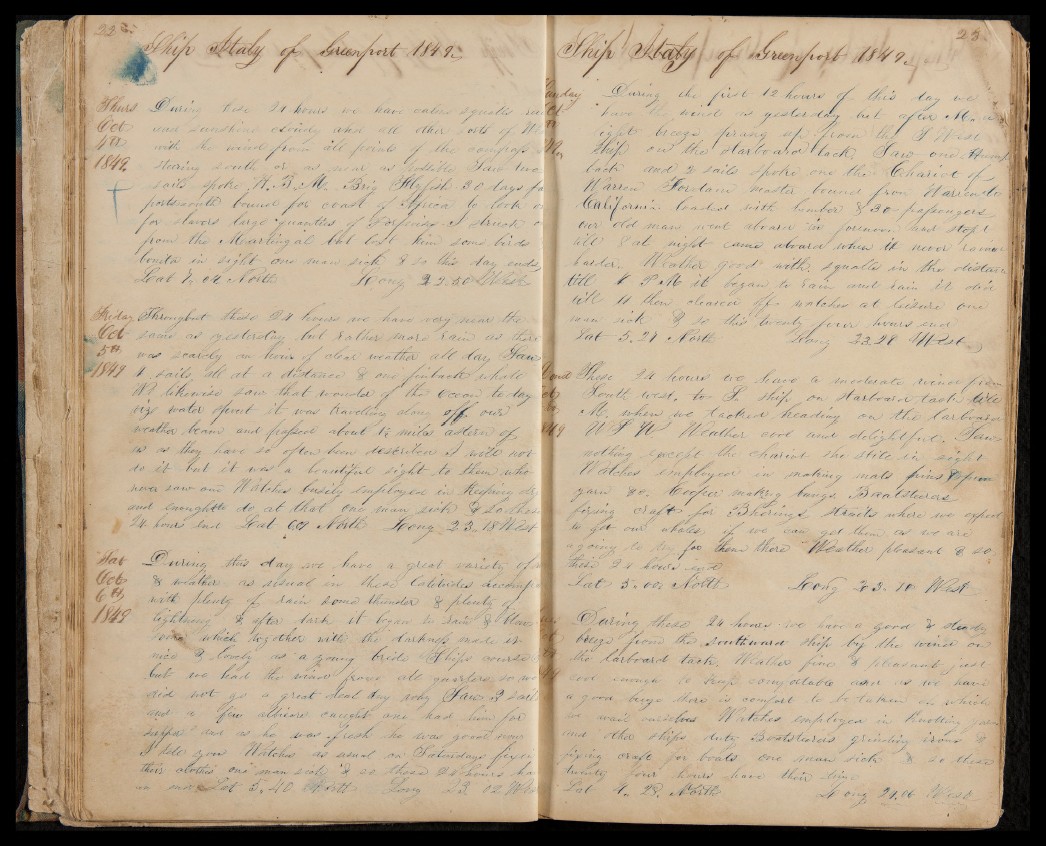 22
Ship Italy of Greenport 1849
Thurs Oct 4th 1849
During these 24 hours we have calms squalls
and sunshine cloudy and all other sorts of
with the wind from all points of the compass
steering south or as near as possible Saw two
sails spoke H. B. M. Brig 30 days
portsmouth bound for coast of Africa to look
for slavers large quantity of Porpoises I struck
from the Martingal but lost him some birds
bonita in sight one man sick & so this day ends
Lat 7, 04 North Long 23.50 West
Friday Oct 5th 1849
Throughout these 24 hours we have very near the
same as yesterday but rather more rain as there
was scarcely an hour of clear weather all day Saw
sails all at a distance & one finback whale
We likewise saw that wonder of the Ocean to day
viz water spout it was traveling along off our
weather beam and passed about 1½ miles astern of
us as they have so often been described I will not
do it but it was a beautiful sight to them who
never saw one Watches busily employed in Keeping dry
and enough to do at that one man sick & so these
24 hours end Lat North Long 23.18 West
Sat Oct 6th 1849
During this day we have a great variety of
& weather as usual in these Latitudes
with plenty of rain some thunder & plenty of
lightning & after dark it began to rain &
some which together with the darkness made it
nice & lovely as a young bride Ships course
but we had the wind from all quarters so we
did not go a great deal any way Saw 2 sail
and a few albicore caught one had him for
supper and as he was fresh he was good
I tell you Watches as usual on Saturdays
their clothes one man sick & so these 24 hours
Lat 5.40 North Long 23 02
23
Ship Italy of Greenport 1849
Sunday
During the first 12 hours of this day we
have the wind as yesterday but after
light breeze sprang up from the S West
Ship on the starboard tack, Saw one
back and 2 sails spoke one the Chariot of
Warren Forsland master bound from Warren to
California loaded with lumber & 30 passengers
our old man went aboard in forenoon and stopt
till 8 at night came aboard when it
Weather good with squalls in the distance
till 8 P M it began to rain and rain it did
till 11 then cleared off watches at leisure one
man sick & so this twenty four hours end
Lat 5.21 North Long 23.28 West
These 24 hours we have a moderate wind from
South west to S. ship on starboard tack till
M. when we tacked heading on the larboard
W S W Weather cool and delightful. Saw
nothing except the chariot she still in sight
Watches employed in making mats
yarn &c. Cooper making bungs Boatsteerers
fixing craft for Bherings Straits where we expect
to get our whales if we can get them as we are
agoing to try for them there Weather pleasant & so
these 24 hours end
Lat 5.00 North Long West
During these 24 hours we have a good & steady
breeze from the southward ship by the wind on
the larboard tack. Weather fine & pleasant just
cool enough to keep comfortable and as we have
a good large there is comfort to be taken on which
we avail ourselves Watches employed in knotting yarn
and other ships duty Boatsteerers grinding irons &
fixing craft for boats one man sick & so these
twenty four hours have their time
Lat 4.23. North Long 24.06 West